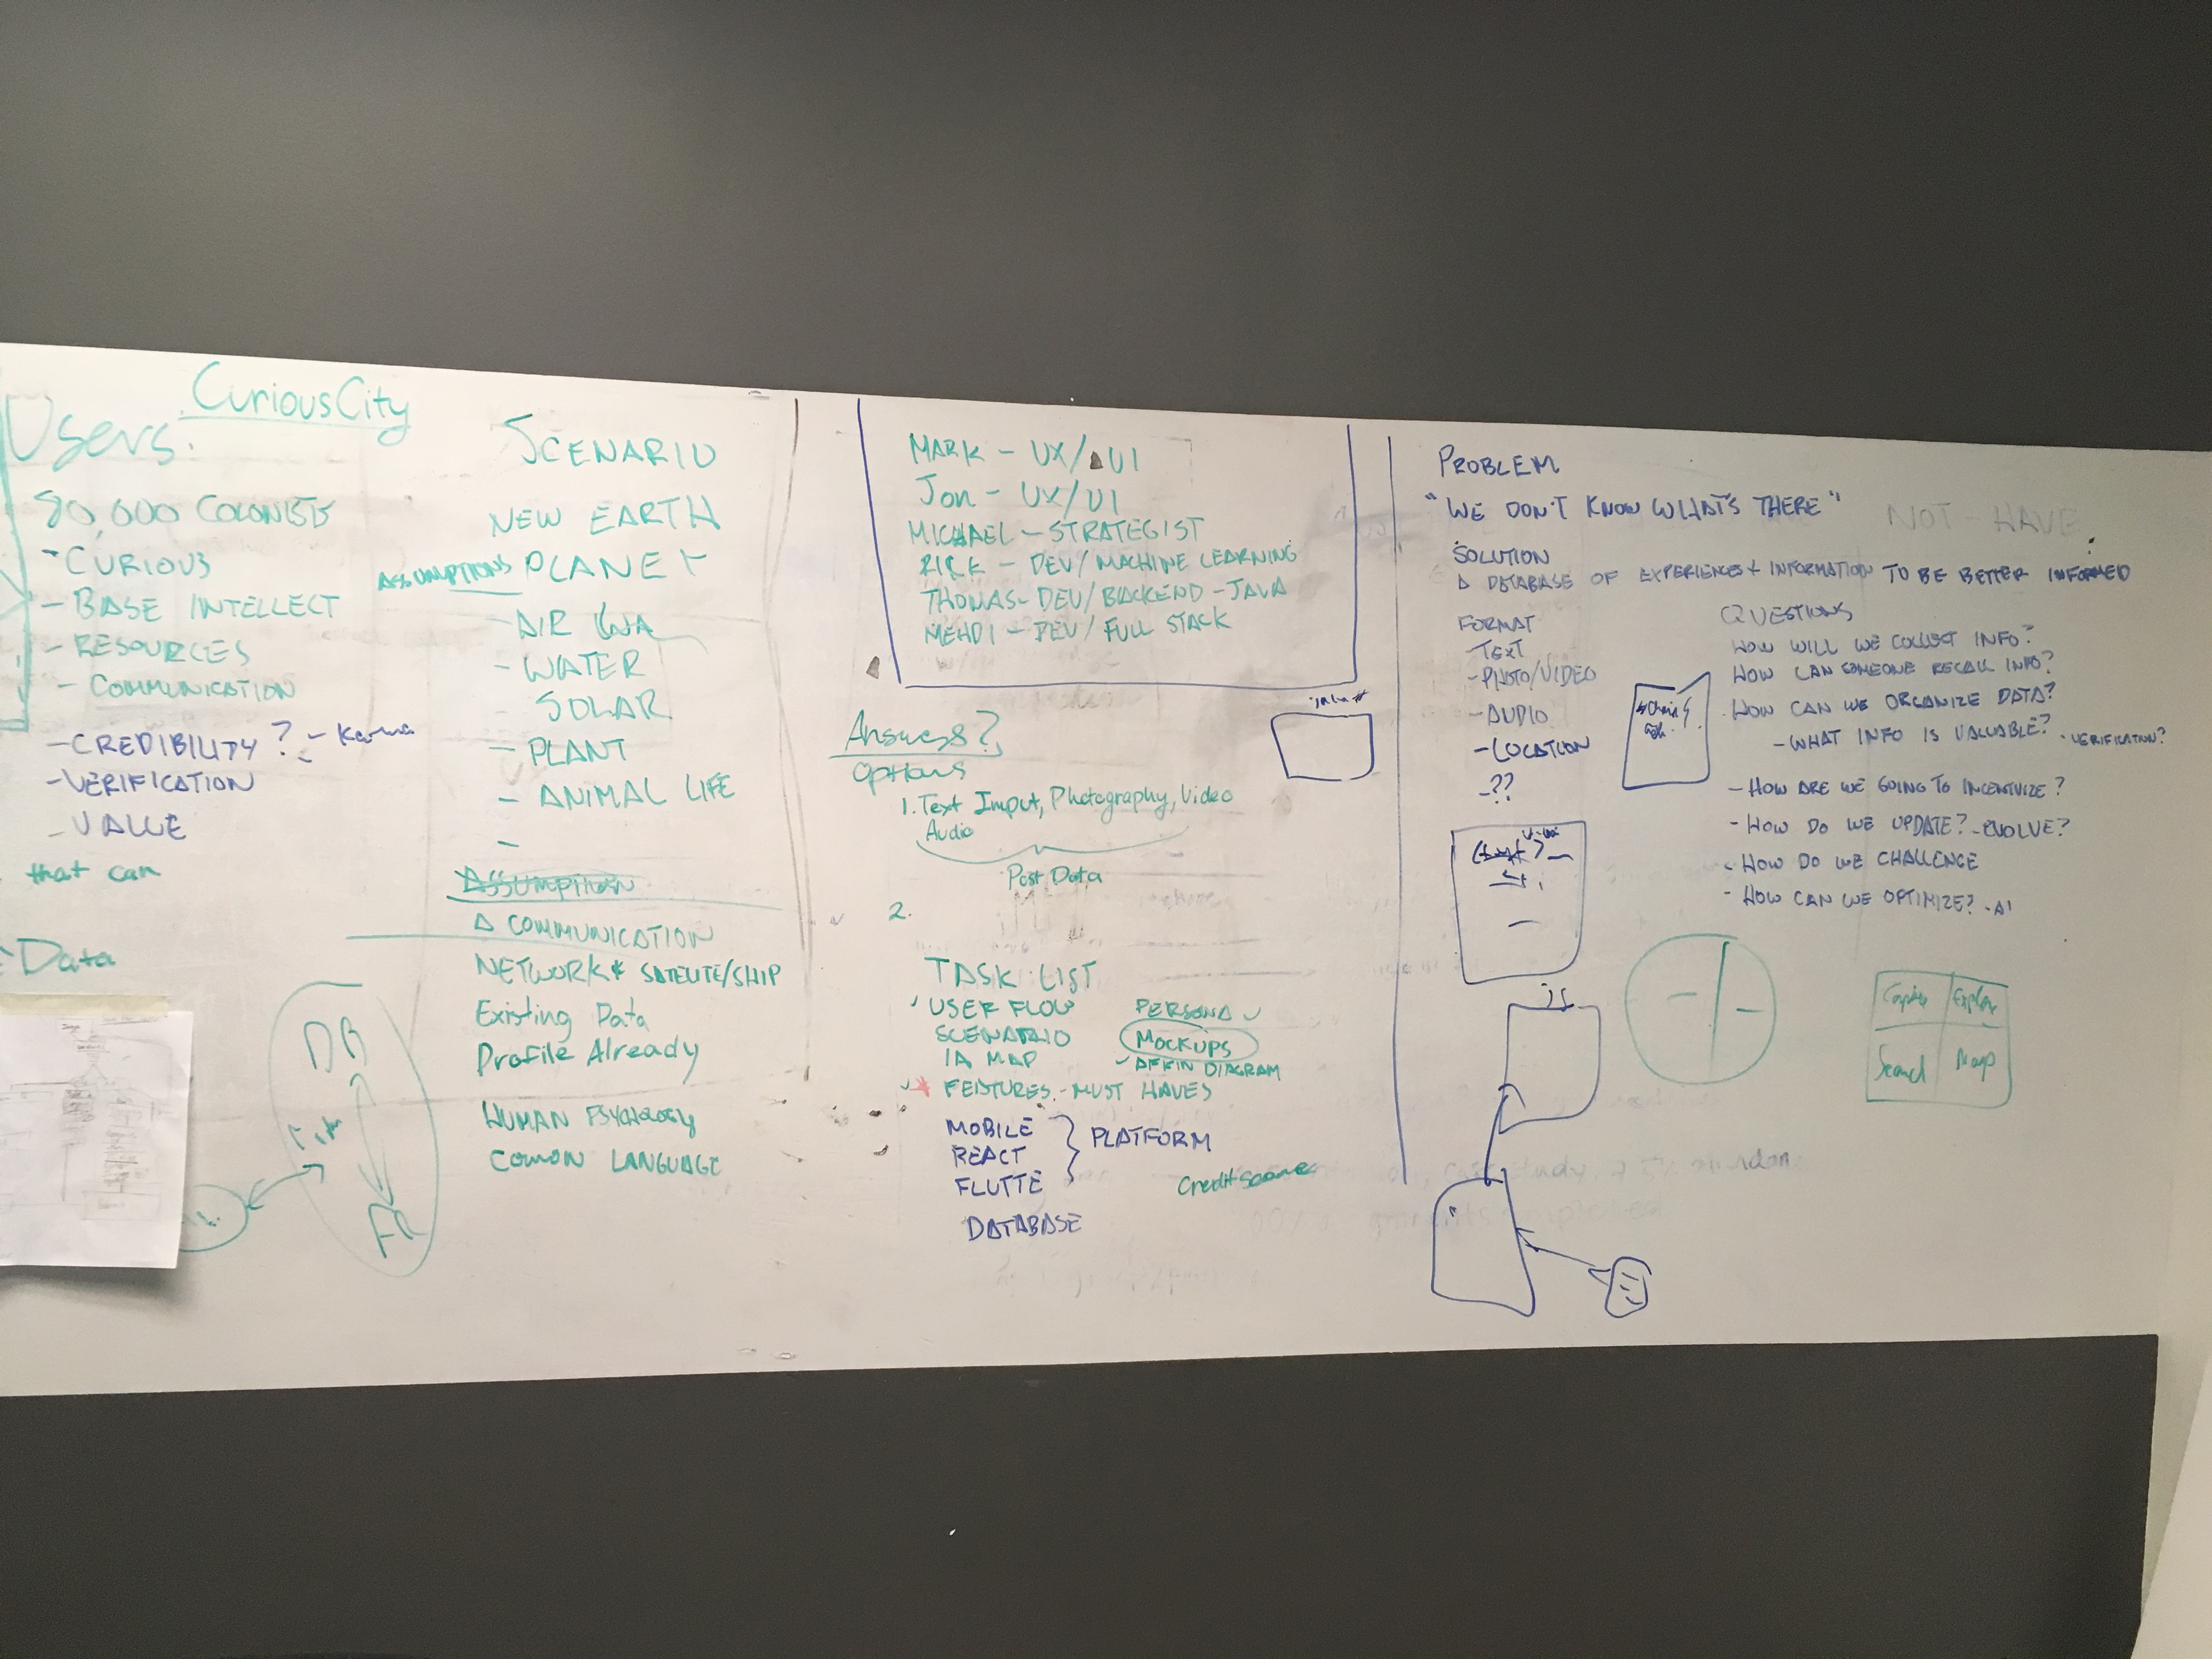 CuriousCity
Users:
80,000 COLONISTS
- CURIOUS
- BASE INTELLECT
- RESOURCES
- COMMUNICATION
- CREDIBILITY? - Karma
- VERIFICATION
- VALUE
that can
Data
DB
SCENARIO
NEW EARTH
ASSUMPTIONS PLANET
- AIR
- WATER
SOLAR
- PLANT
- ANIMAL LIFE
-
ASSUMPTION
COMMUNICATION
NETWORK * SATELITE/SHIP
Existing Data
Profile Already
HUMAN PSYCHOLOGY
COMON LANGUAGE
MARK - UX/UI
JON - UX/UI
MICHAEL - STRATEGIST
RICK - DEV/MACHINE LEARNING
THOMAS - DEV/BACKEND - JAVA
MEHDI - DEV/FULL STACK
Options
1. Text Input, Photography, Video
Audio
Post Data
2.
TASK LIST
USER FLOW
SCENARIO
IA MAP
FEATURES - MUST HAVES
PERSONA
MOCKUPS
AFFIN DIAGRAM
MOBILE
REACT
FLUTTE
PLATFORM
DATABASE
Credit Score
PROBLEM
"WE DON'T KNOW WHAT'S THERE"
NOT - HAVE
SOLUTION
A DATABASE OF EXPERIENCES + INFORMATION TO BE BETTER INFORMED
FORMAT
- TEXT
- PHOTO/VIDEO
- AUDIO
- LOCATION
- ??
QUESTIONS
HOW WILL WE COLLECT INFO?
HOW CAN SOMEONE RECALL INFO?
HOW CAN WE ORGANIZE DATA?
- WHAT INFO IS VALUABLE? - VERIFICATION?
- HOW ARE WE GOING TO INCENTIVIZE?
- HOW DO WE UPDATE? - EVOLVE?
- HOW DO WE CHALLENGE
- HOW CAN WE OPTIMIZE? - AI
Search
Map